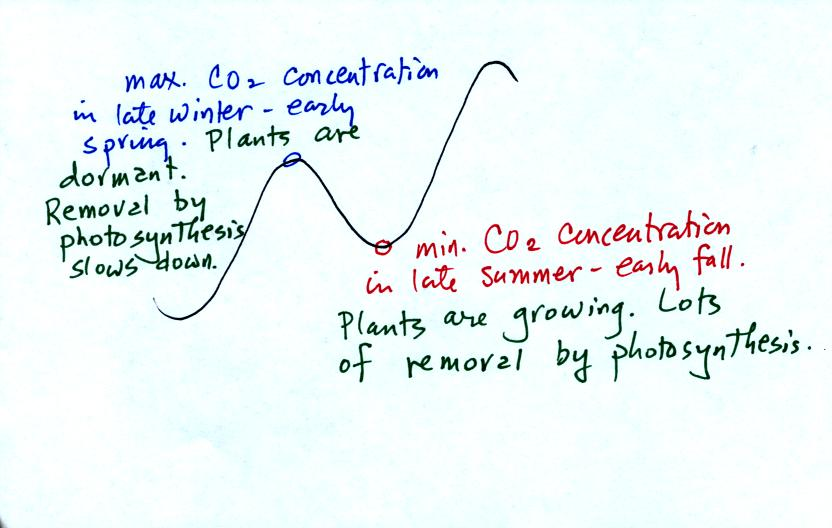 max. CO2 concentration
in late winter - early
spring. Plants are
dormant.
Removal by
photosynthesis
slows down.
min. CO2 concentration
in late summer - early fall.
Plants are growing. Lots
of removal by photosynthesis.